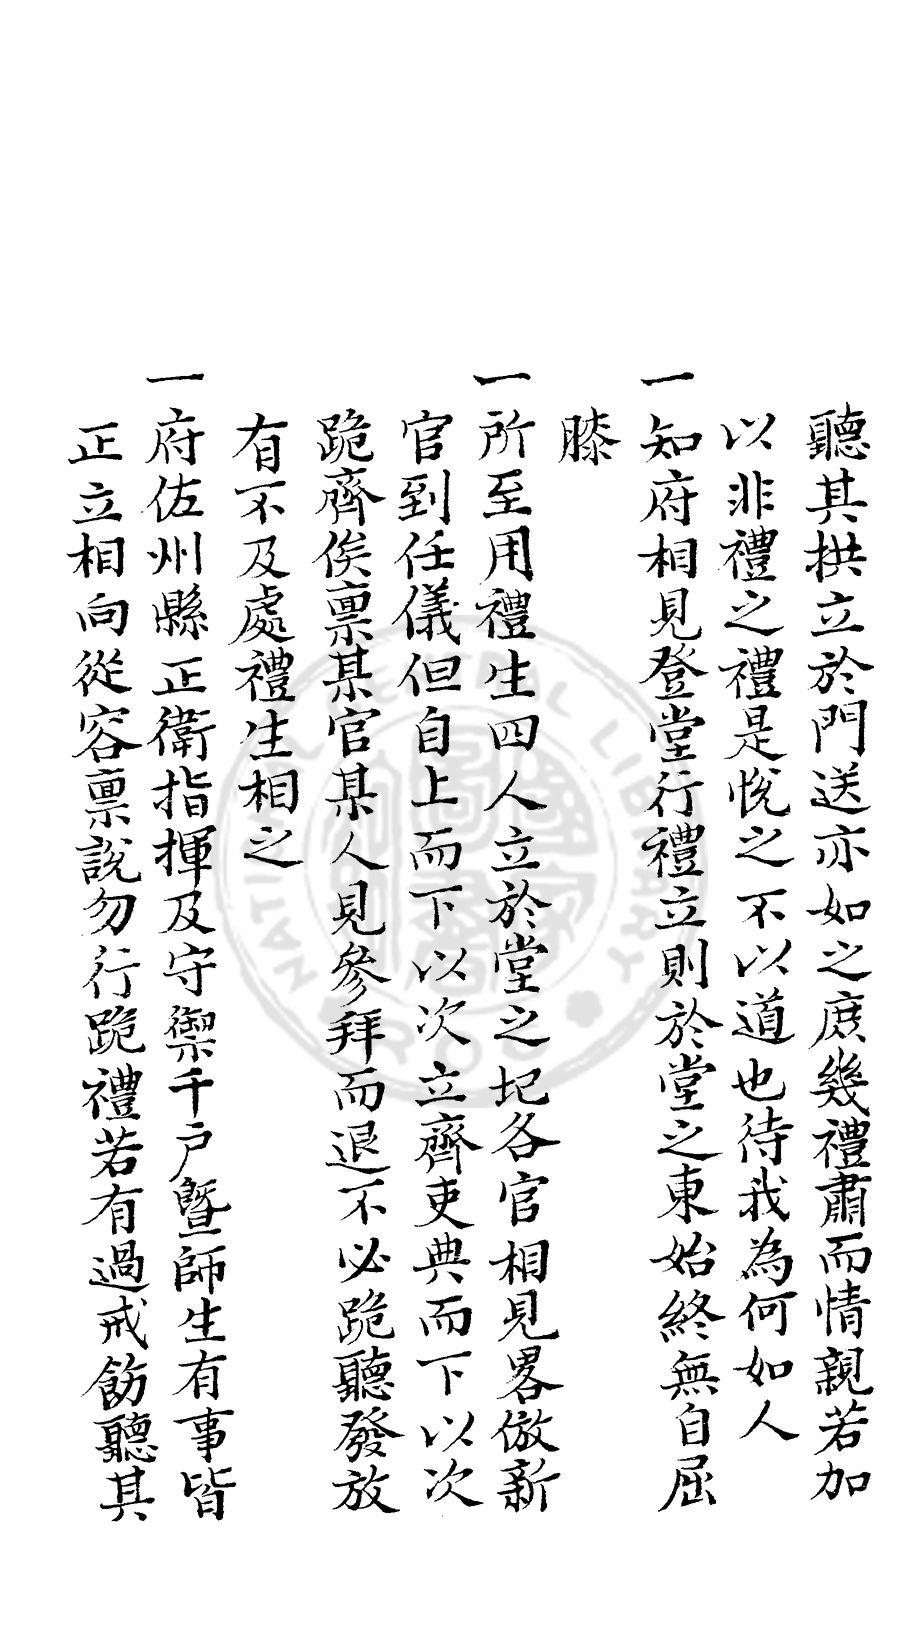 聽其拱立於門送亦如之庶幾禮肅而情親若加
以非禮之禮是悅之不以道也待我為何如人
一知府相見登堂行禮立則於堂之東始終無自屈
膝
一所至用禮生四人立於堂之圮各官相見畧倣新
官到任儀但自上而下以次立齊吏典而下以次
跪齊俟稟某官某人見參拜而退不必跪聽發放
有不及處禮生相之
一府佐州縣正衛指揮及守禦千户暨師生有事皆
正立相向從容稟說勿行跪禮若有過戒飭聽其
NATIONAL CENTRAL LIBRARY
R.O.C